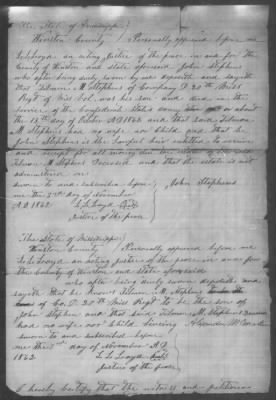 The State of Mississippi
Winston County } Personally appeared before me
L L Loyd an acting Justice of the peace in and for the
County of Winston and state aforesaid John Stephens
who after being duly sworn by me deposeth and sayeth
that Tilmon M. Stephens of Company D. 20th Miss
Regt of Vol was his son and died in the
service of the Confederate States on or about
the 15th day of A D 1862 and that said Tilmon
M Stephens had no wife nor Child and that he
John Stephens is the proper heir entitled to receive
and receipt for all money
Tilmon M Stephens Deceased and that the estate is not
administered on
sworn to and subscribed before } John Stephens
me the 3rd day of November
A D 1862 L L Loyd
Justice of the peace
The State of Mississippi
Winston County } Personally appeared before me
L L Loyd an acting Justice of the peace in and for
the County of Winston and state aforesaid
who after being duly sworn deposeth and
sayeth that he knows Tilmon M. Stephens
of Co. D. 20th Miss Regt to be the son of
John Stephens and that said Tilmon M. Stephens Deceased
had no wife nor Child living
sworn to and subscribed before
me the 3rd day of November A D
1862 L L Loyd
Justice of the peace
I hereby Certify that the witness and petitioner